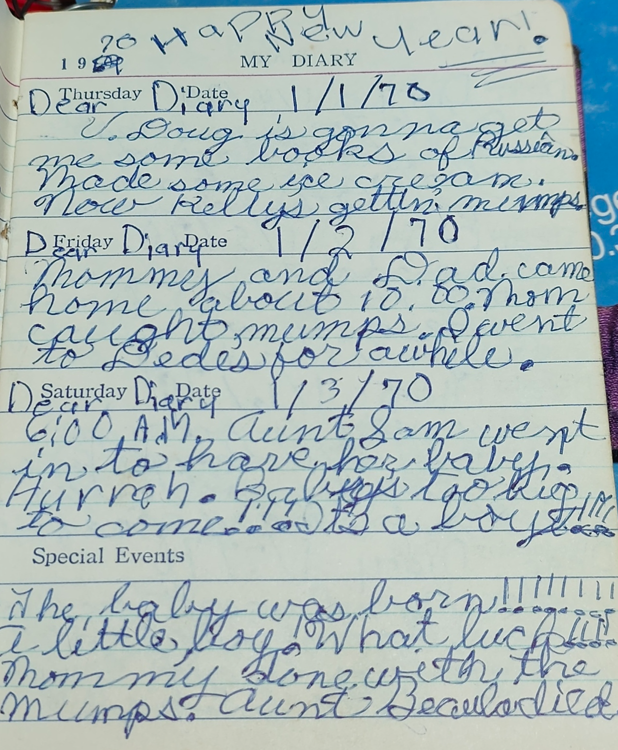 70 Happy New Year!
19 MY DIARY
Thursday Date
Dear Diary 1/1/70
U. Doug is gonna get
me some books of Russian.
Made some ice cream.
Now Kellys gettin' mumps
Friday Date
Dear Diary 1/2/70
Mommy and Dad came
home about 10:00. Mom
caught mumps. I went
to Dedes for awhile.
Saturday Date
Dear Diary 1/3/70
6:00 A.M. Aunt Sam went
in to have her baby.
Hurrah. too big
to come.... Its a boy!!!!
Special Events
The baby was born!!!!!!!!
a little boy! What luck!!!!
Mommy done with the
Mumps. Aunt died